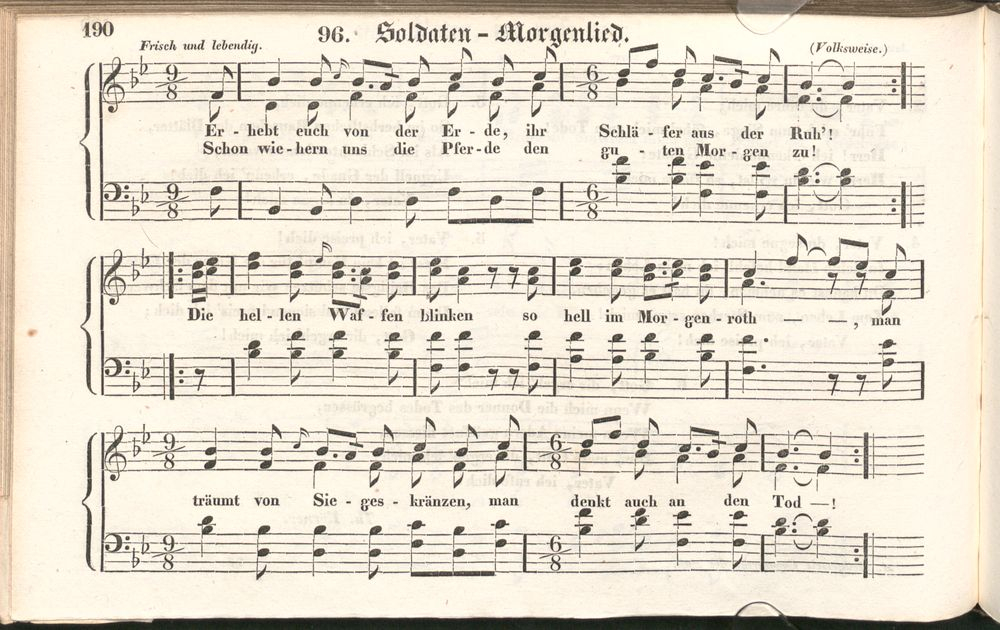 190
96. Soldaten-Morgenlied.
Frisch und lebendig.
(Volksweise.)
Er-hebt euch von der Er-de, ihr Schlä-fer aus der Ruh'!
Schon wie-hern uns die Pfer-de den gu-ten Mor-gen zu!
Die hel-len Waf-fen blinken so hell im Mor-gen-roth —, man
träumt von Sie-ges-kränzen, man denkt auch an den Tod —!